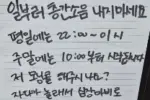 일부러 층간소음 내지마세요
평일에는 22:00~ 이시
주말에는 10:00부터 시작합니다
저 모닝콜 해주시나요?
자다가 놀래서